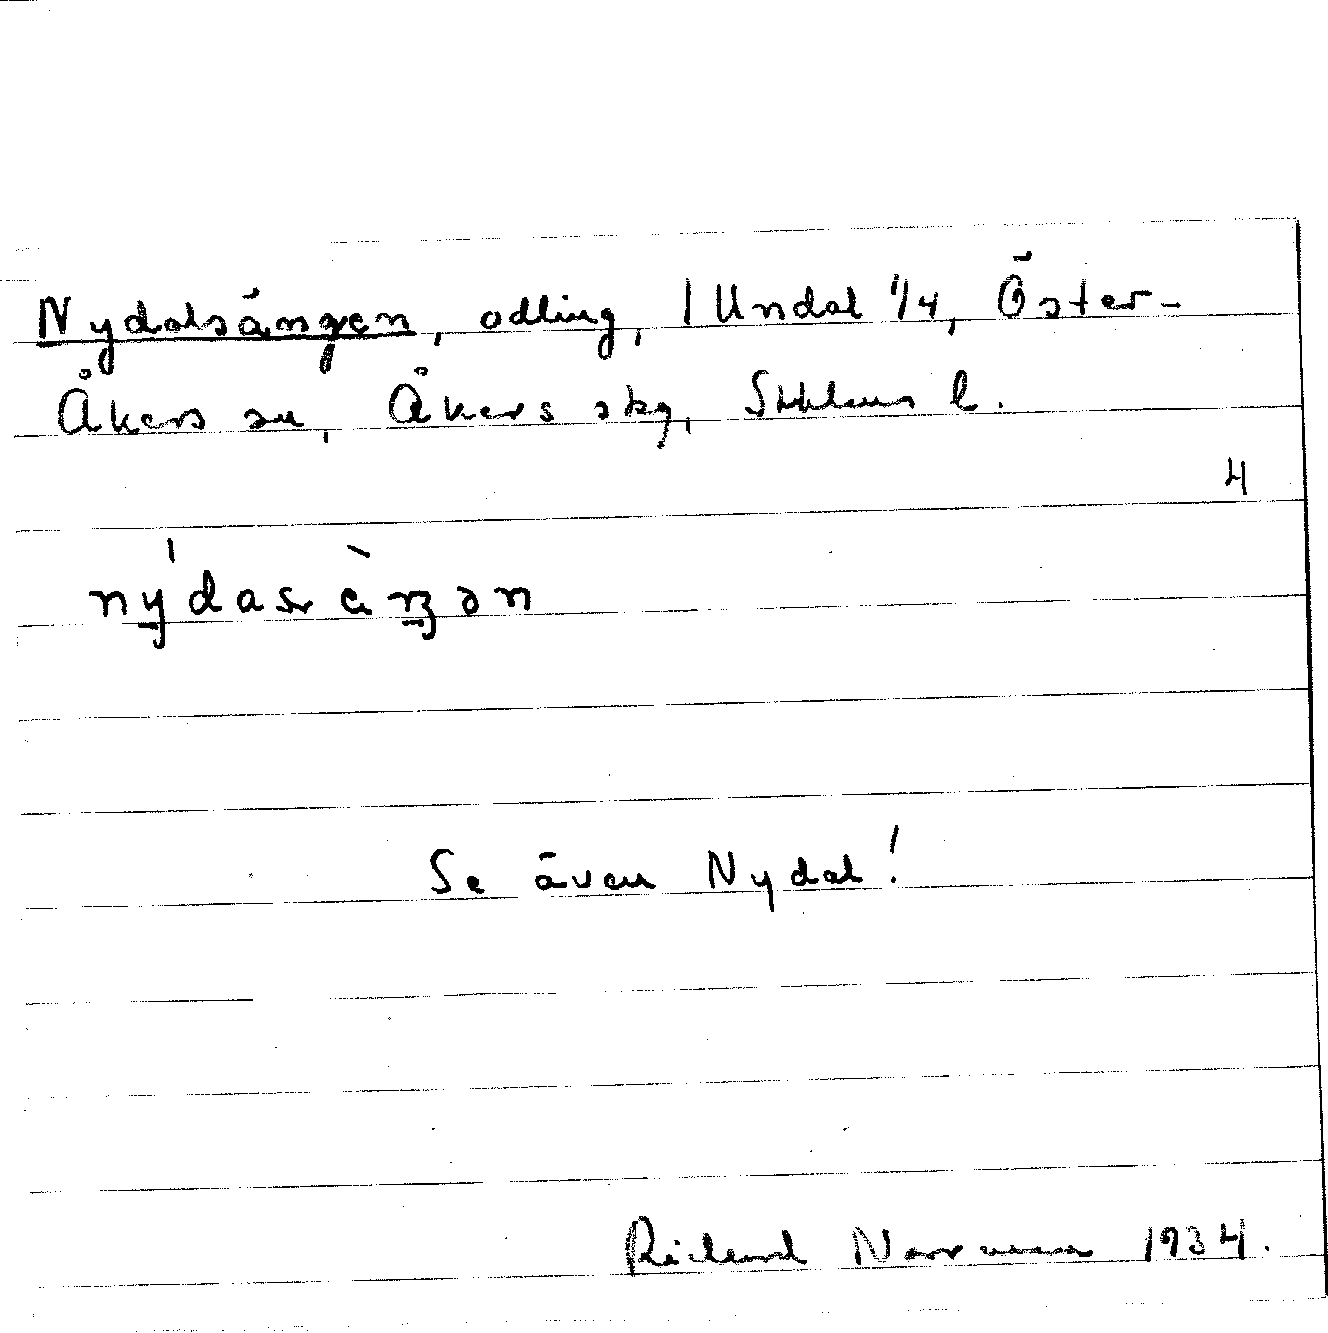 Nydalsängen, odling, 1 Undal 1/4, Öster-
Åkers sn, Åkers skg, Sthlms l.
4
Se även Nydal!
Rickard Norrman 1934.